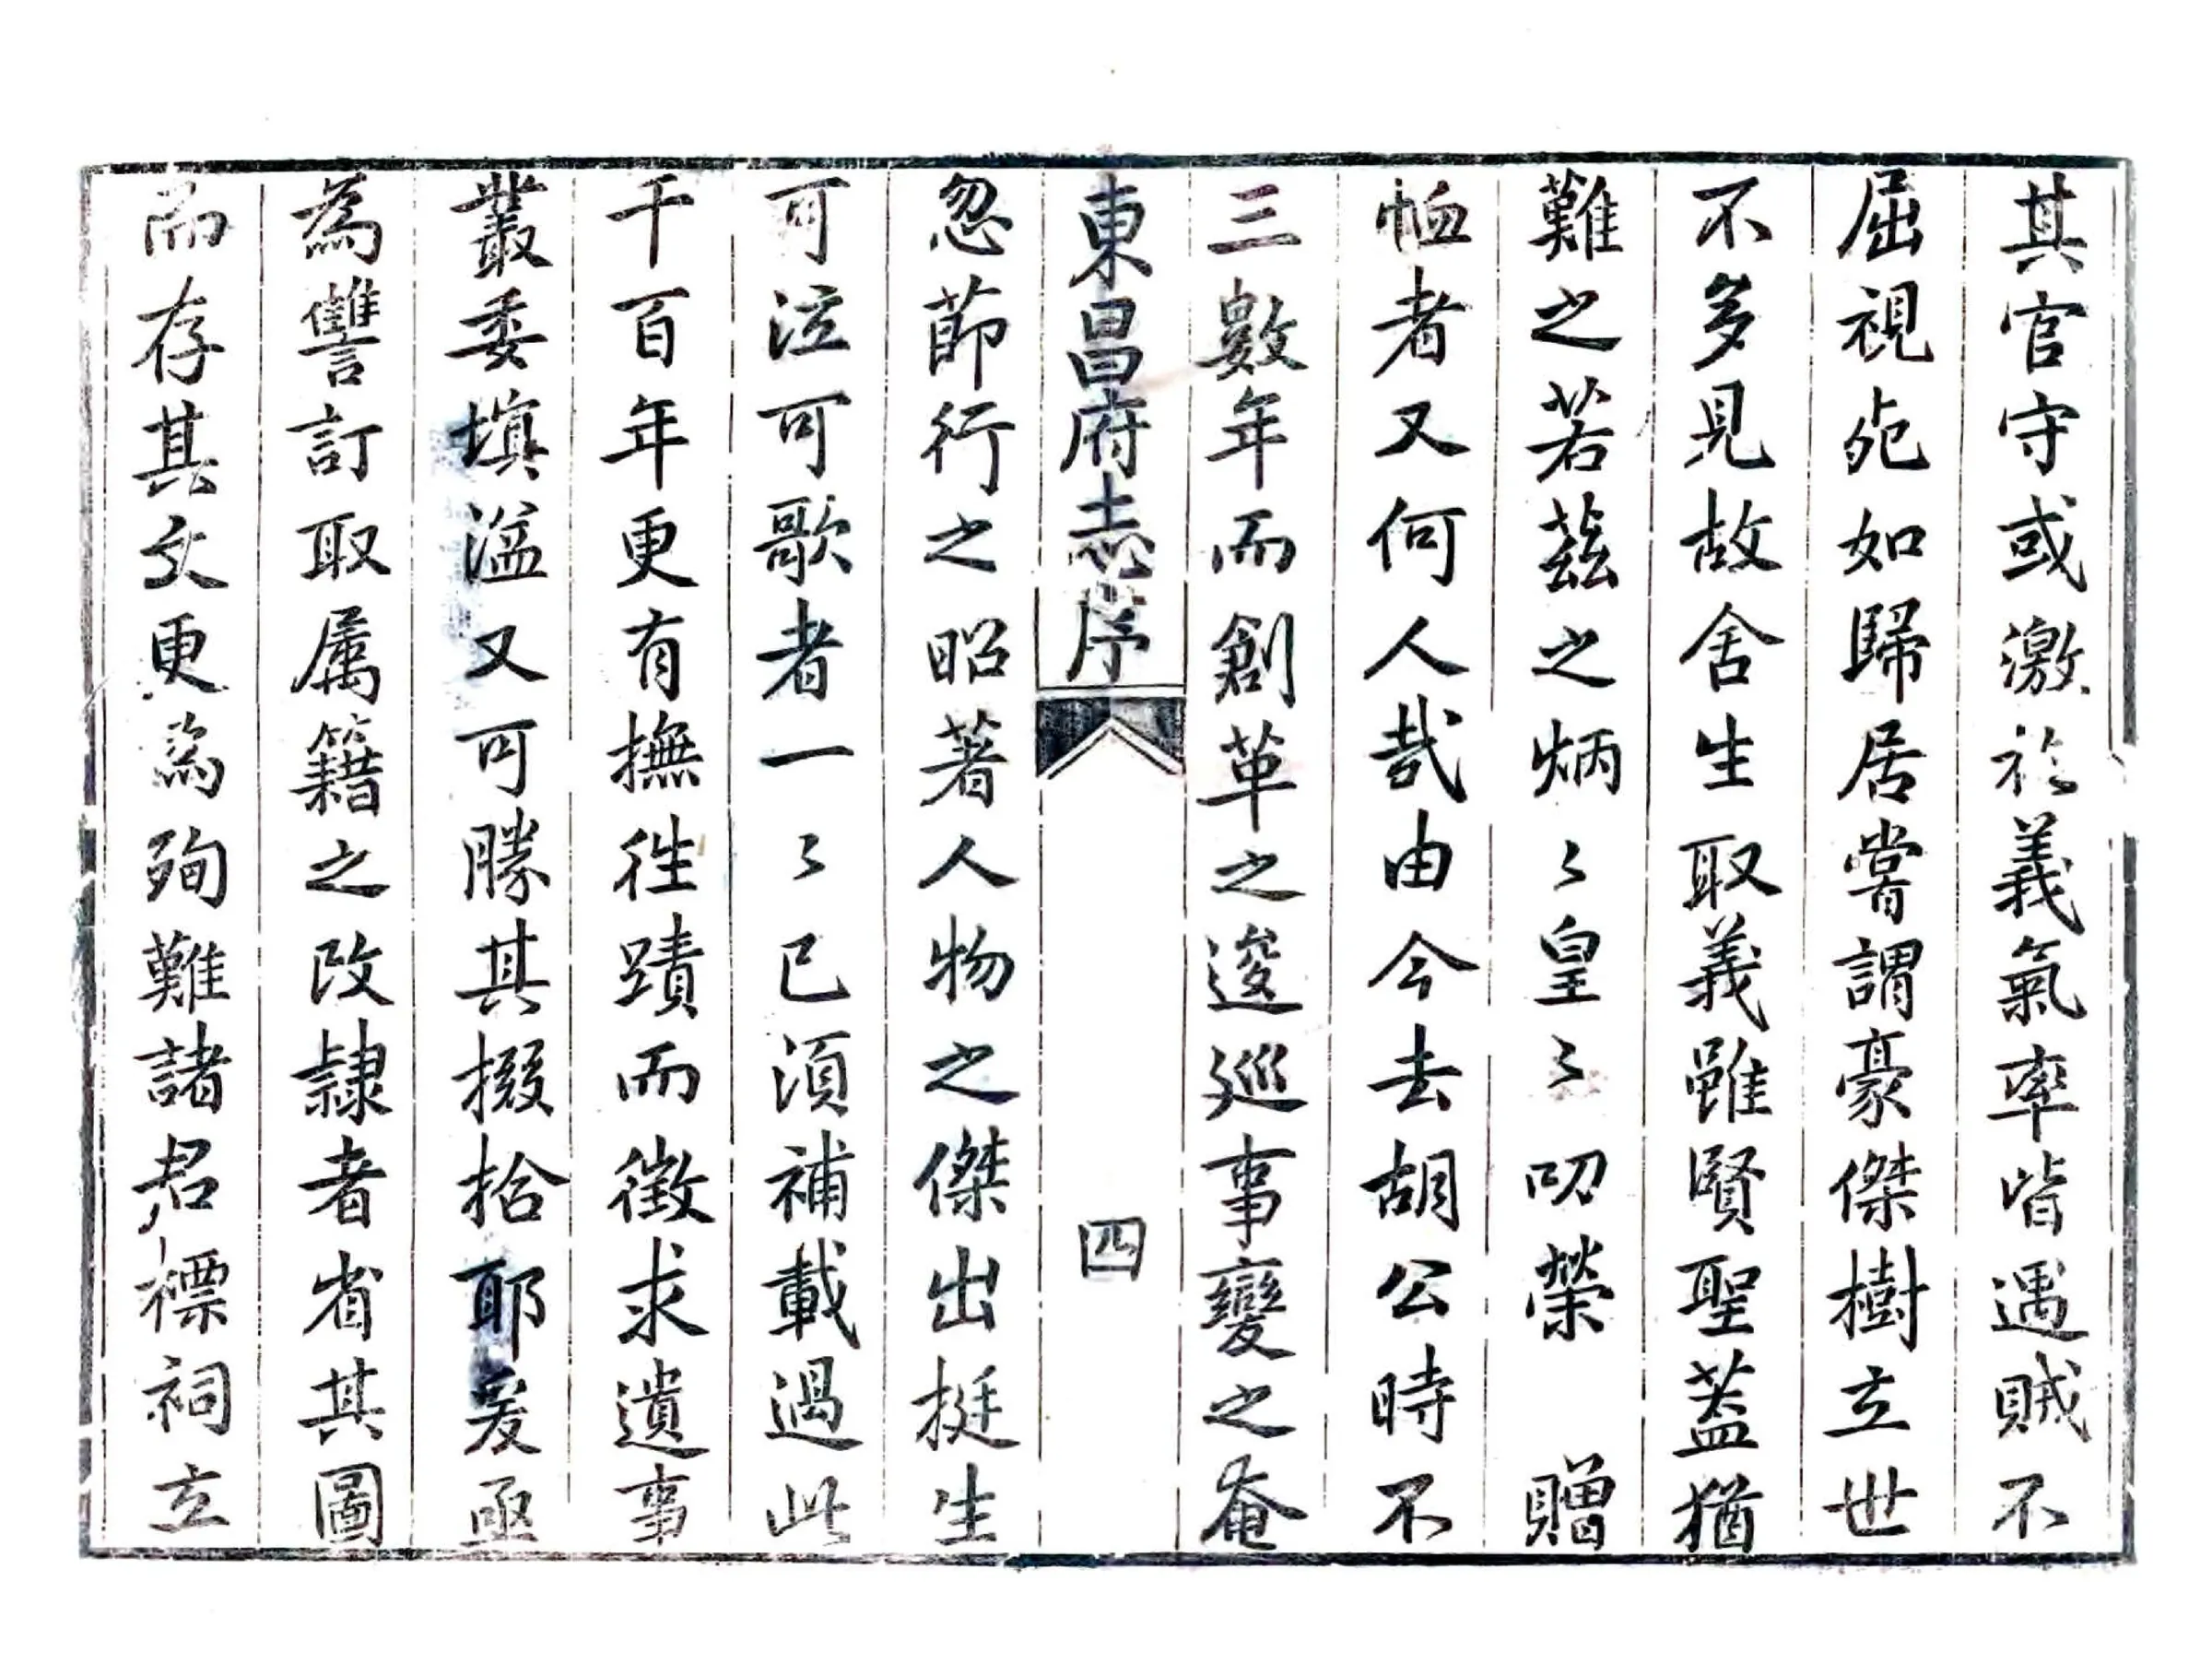 其官守或激於義氣率皆遇賊不
屈視死如歸居嘗謂豪傑樹立世
不多見故舍生取義雖賢聖蓋猶
難之若茲之炳〻皇〻叨榮　贈
恤者又何人哉由今去胡公時不
三數年而創革之逡巡事變之奄
東昌府志序
四
忽節行之昭著人物之傑出挺生
可泣可歌者一〻已須補載過此
千百年更有撫往蹟而徵求遺事
叢委填溢又可勝其掇拾耶爰亟
為讐訂取属籍之改隸者省其圖
而存其文更為殉難諸君標祠立